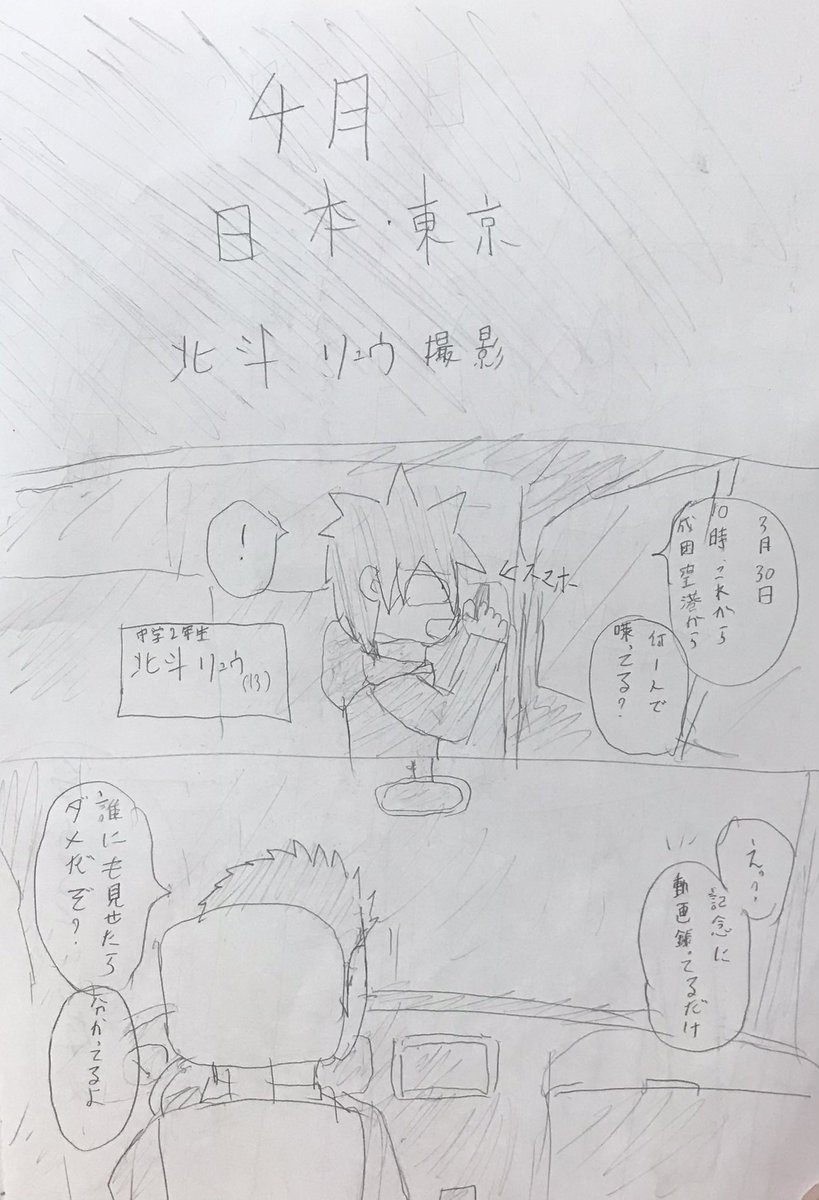 4月
日本・東京
北斗 リュウ 撮影
3月30日
10時、これから
成田空港から
何一人で
喋ってる?
!
←スマホ
中学2年生
北斗 リュウ
(13)
えっ?
記念に
動画録ってるだけ
誰にも見せたら
ダメだぞ?
分かってるよ